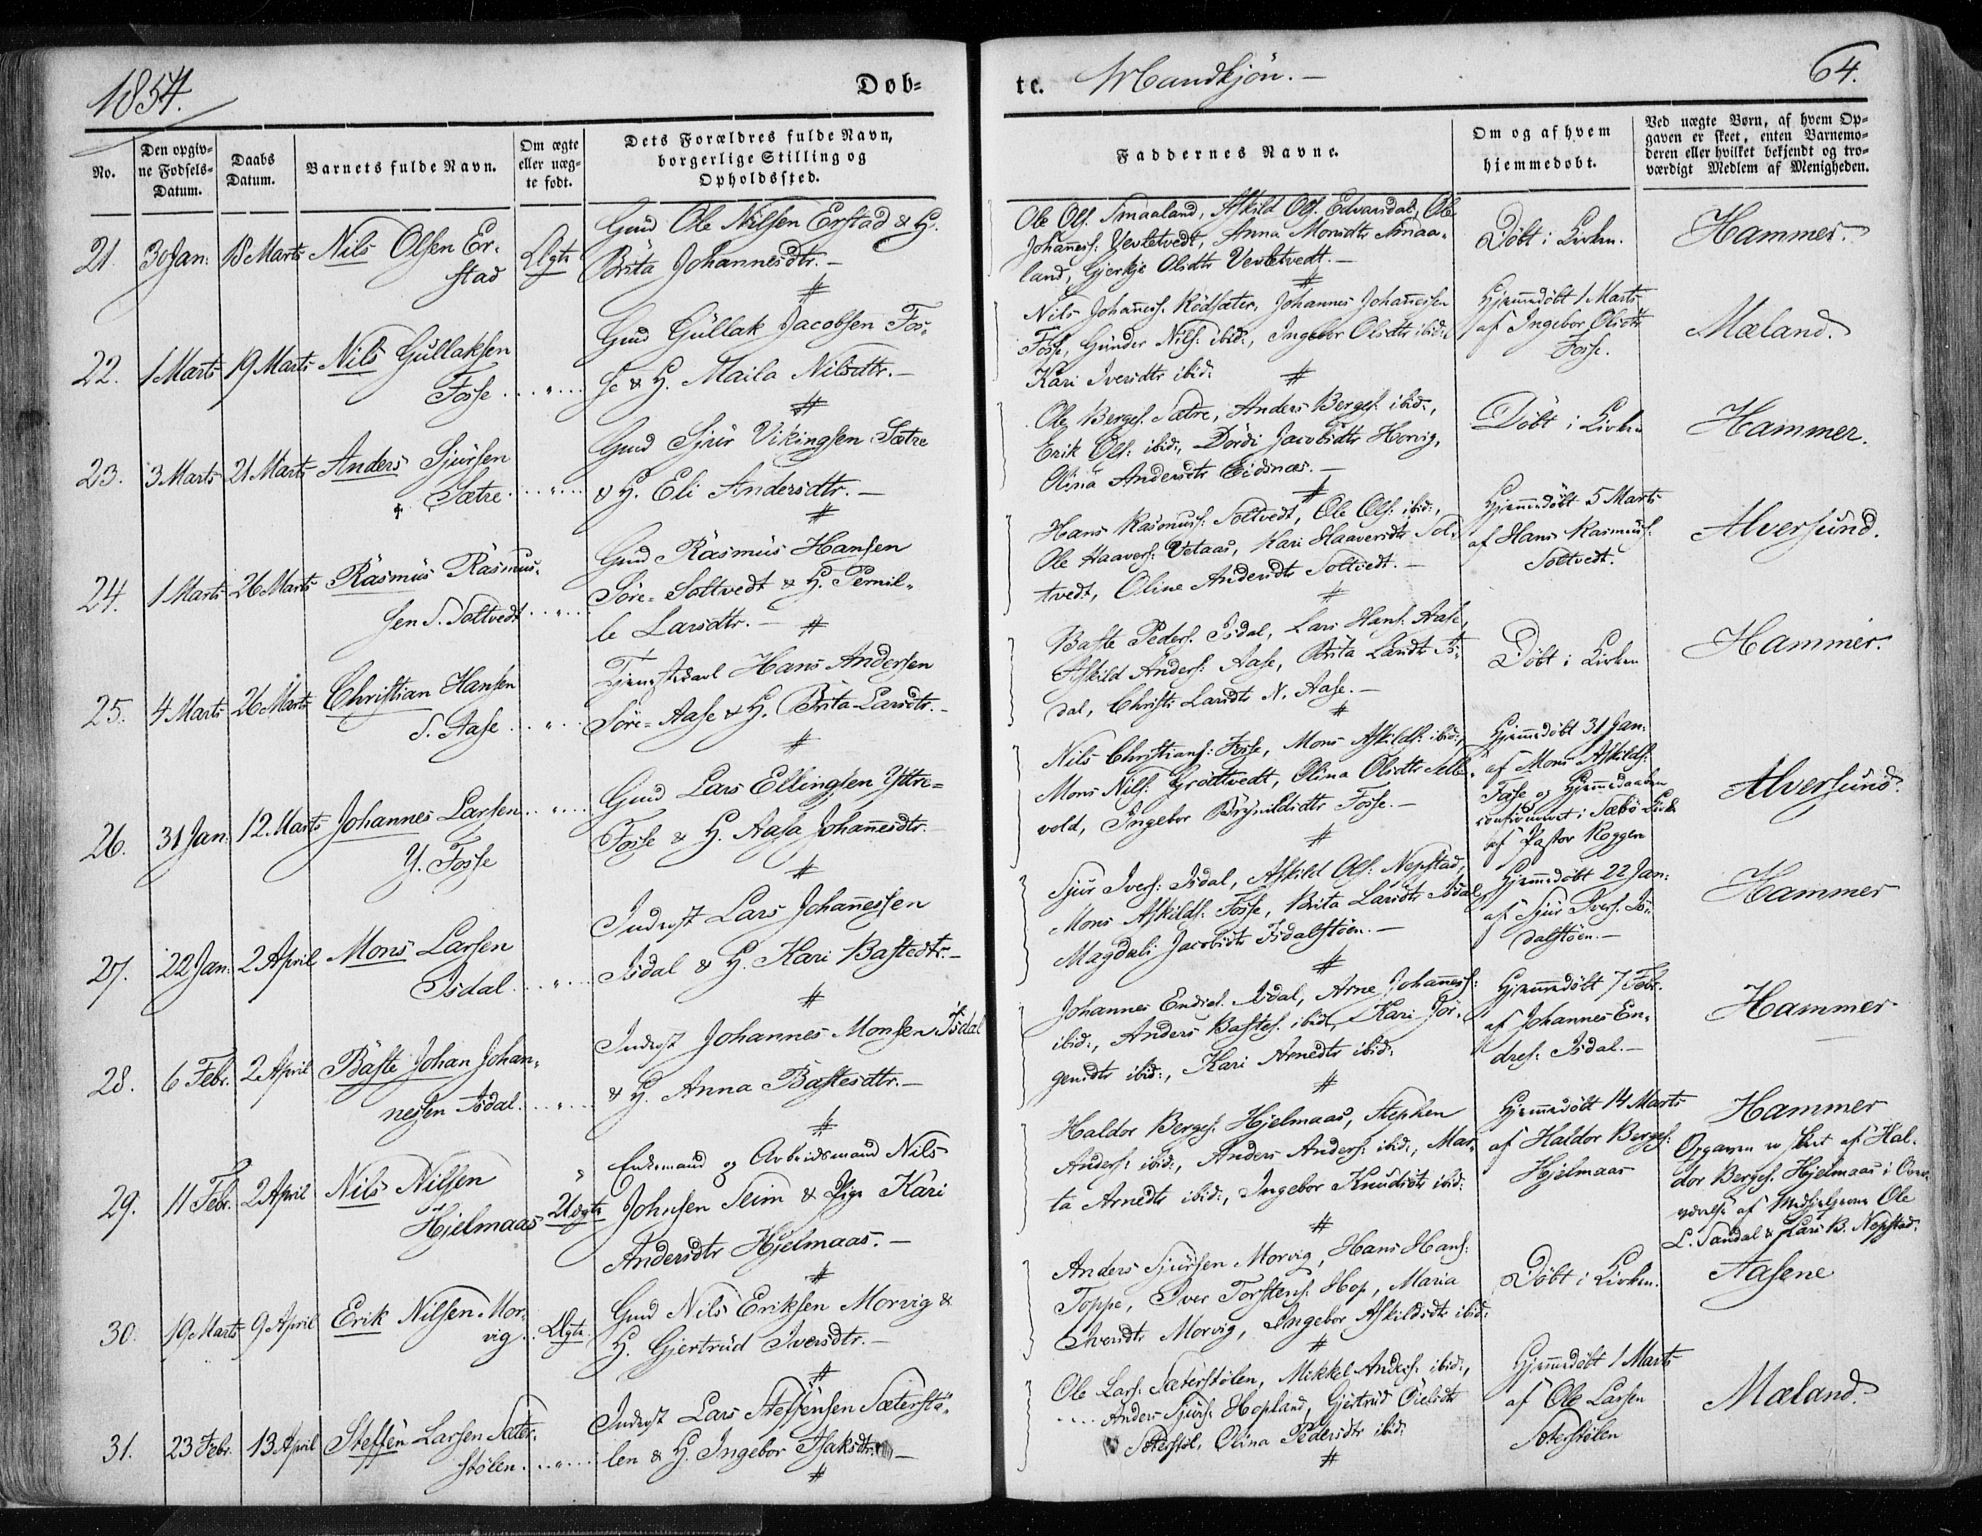 1854.
Døb=
te. Mandkjön. —
64.
No.
Den opgiv=
ne Fødsels=
Datum.
Daabs
Datum.
Barnets fulde Navn.
Om ægte
eller uæg=
te født.
Dets Forældres fulde Navn,
borgerlige Stilling og
Opholdssted.
Faddernes Navne.
Om og af hvem
hjemmedøbt.
Ved uægte Børn, af hvem Op=
gaven er skeet, enten Barnemo=
deren eller hvilket bekjendt og tro=
værdigt Medlem af Menigheden.
21. 30 Jan: 18 Marts Nils Olsen Er-
stad
Ægte
Gmd Ole Nilsen Erstad & H.
Brita Johannesdtr. —
Ole Ols. Smaaland, Askild Ols. Edvarsdal, Ole
Johaness. Vevletvedt, Anna Monsdtr Smaa-
land, Gjertje Olsdtr Vevletvedt. —
Döbt i Kirken.
Hammer.
22. 1 Marts 19 Marts Nils Gullaksen
Fosse
Gmd Gullak Jacobsen Fos-
se & H. Maila Nilsdtr. —
Nils Johaness. Rödsæter, Johannes Johanessen
Fosse, Gunder Nils. ibid:, Ingebor Olsdtr ibid:,
Kari Iversdtr ibid:
Hjemmedöbt 1 Marts
af Ingebor Olsdtr
Fosse.
Mæland.
23. 3 Marts 21 Marts Anders Sjursen
Sætre
Gmd Sjur Vikingsen Sætre
& H. Eli Andersdtr. —
Ole Berges. Sætre, Anders Berges. ibid:,
Erik Ols: ibid:, Dordi Jacobsdtr Horvig,
Olina Andersdtr Eidsnæs. —
Döbt i Kirken
Hammer.
24. 1 Marts 26 Marts Rasmus Rasmus-
sen S. Soltvedt
Gmd Rasmus Hansen
Söre-Soltvedt & H. Pernil-
le Larsdtr. —
Hans Rasmuss. Soltvedt, Ole Ols. ibid:,
Ole Haavers. Vetaas, Kari Haaversdtr Sol-
tvedt, Oline Andersdtr Soltvedt. —
Hjemmedöbt 5 Marts
af Hans Rasmus:
Soltvedt.
Alversund.
25. 4 Marts 26 Marts Christian Hansen
S. Aase
Tjenestekarl Hans Andersen
Söre-Aase & H. Brita Larsdtr. —
Baste Peders. Isdal, Lars Hans. Aase,
Askild Anders: Aase, Brita Larsdtr Is-
dal, Christi Larsdtr N. Aase. —
Döbt i Kirken
Hammer.
26. 31 Jan: 12. Marts Johannes Larsen
Y. Fosse
Gmd Lars Ellingsen Yttre-
Fosse & H. Aasa Johanesdtr. —
Nils Christians: Fosse, Mons Askilds. ibid:,
Mons Nils. Grottvedt, Olina Olsdtr Selle-
vold, Ingebor Brynildsdtr Fosse. —
Hjemmedöbt 31 Jan:
af Mons Askilds.
Fosse og Hjemmedaaben
confirmeret i Sæbö Kirke
af Pastor Koggen
Alversund.
27. 22 Jan: 2 April Mons Larsen
Isdal
Inderst Lars Johannessen
Isdal & H. Kari Bastedtr. —
Sjur Ivers: Isdal, Askild Ols. Nepstad,
Mons Askilds. Fosse, Brita Larsdtr Isdal,
Magdali Jacobsdtr Isdalstöen. —
Hjemmedöbt 22 Jan:
af Sjur Ivers. Is-
dalstöen. —
Hammer
28. 6 Febr. 2 April Baste Johan Johan-
nessen Isdal
Inderst Johannes Monsen Isdal
& H. Anna Bastesdtr. —
Johannes Endres. Isdal, Arne Johaness:
ibid:, Anders Bastes. ibid:, Kari Jör-
gensdtr ibid:, Kari Arnedtr ibid:
Hjemmedöbt 7 Febr.
af Johannes En-
dres: Isdal. —
Hammer
29. 11 Febr. 2 April Nils Nilsen
Hjelmaas
Uægte
Enkemand og Arbeidsmand Nils
Johnsen Seim & Pige Kari
Andersdtr Hjelmaas. —
Haldor Berges. Hjelmaas, Stephen
Anders: ibid:, Anders Anders: ibid:, Mar-
ta Arnedtr ibid:, Ingebor Knudsdtr ibid:
Hjemmedöbt 14 Marts
af Haldor Berges:
Hjelmaas
Hammer
Opgaven er skeet af Hal-
dor Berges. Hjelmaas i Over-
værelse af Medhjelperne Ole
L. Tandal & Lars B. Nepstad.
30. 19 Marts 9 April Erik Nilsen Mor-
vig
Ægte
Gmd Nils Eriksen Morvig &
H. Gjertrud Iversdtr. —
Anders Sjursen Morvig, Hans Hans:
Toppe, Iver Torstens. Hop, Maria
Iversdtr Morvig, Ingebor Askildsdtr ibid:
Döbt i Kirken.
Aasene
31. 23 Febr. 13 April Steffen Larsen Sæter-
stølen
Inderst Lars Steffensen Sæterstø-
len & H. Ingebor Isaksdtr. —
Ole Lars: Sæterstølen, Mikkel Anders: ibid:,
Anders Sjurs: Hopland, Gjertrud Oielsdtr
Sæterstöl, Olina Pedersdtr ibid:
Hjemmedöbt 1 Marts
af Ole Larsen
Sæterstølen
Mæland.